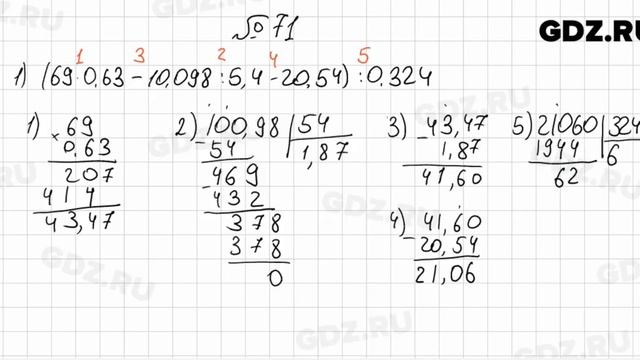 № 71
GDZ.RU
1 3 2 4 5
1) (69·0,63 - 10,098 : 5,4 - 20,54) : 0,324
1) × 69
0,63
207
414
43,47
2) 100,98 | 54
- 54 1,87
- 469
432
378
378
0
3) - 43,47
1,87
41,60
4) - 41,60
20,54
21,06
5) 21060 | 324
1944 6
62